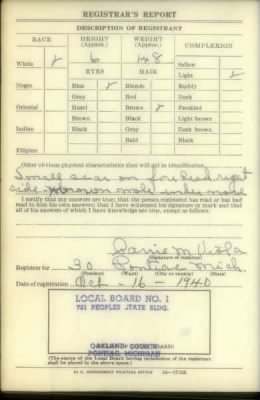 REGISTRAR'S REPORT
DESCRIPTION OF REGISTRANT
RACE HEIGHT (Approx.) WEIGHT (Approx.) COMPLEXION
6 148
White ✓ Sallow
EYES HAIR Light ✓
Negro Blue ✓ Blonde Ruddy
Gray Red Dark
Oriental Hazel Brown ✓ Freckled
Brown Black Light brown
Indian Black Gray Dark brown
Bald Black
Filipino
Other obvious physical characteristics that will aid in identification
Small scar on forehead, right
side brown mole under nose
I certify that my answers are true; that the person registered has read or has had
read to him his own answers; that I have witnessed his signature or mark and that
all of his answers of which I have knowledge are true, except as follows:
M
(Signature of registrar)
Registrar for 30 Pontiac Mich.
(Precinct) (Ward) (City or county) (State)
Date of registration Oct - 16 - 1940
LOCAL BOARD NO. 1
701 PEOPLES STATE BLDG.
OAKLAND COUNTY
PONTIAC, MICHIGAN
(The stamp of the Local Board having jurisdiction of the registrant
shall be placed in the above space.)
U. S. GOVERNMENT PRINTING OFFICE